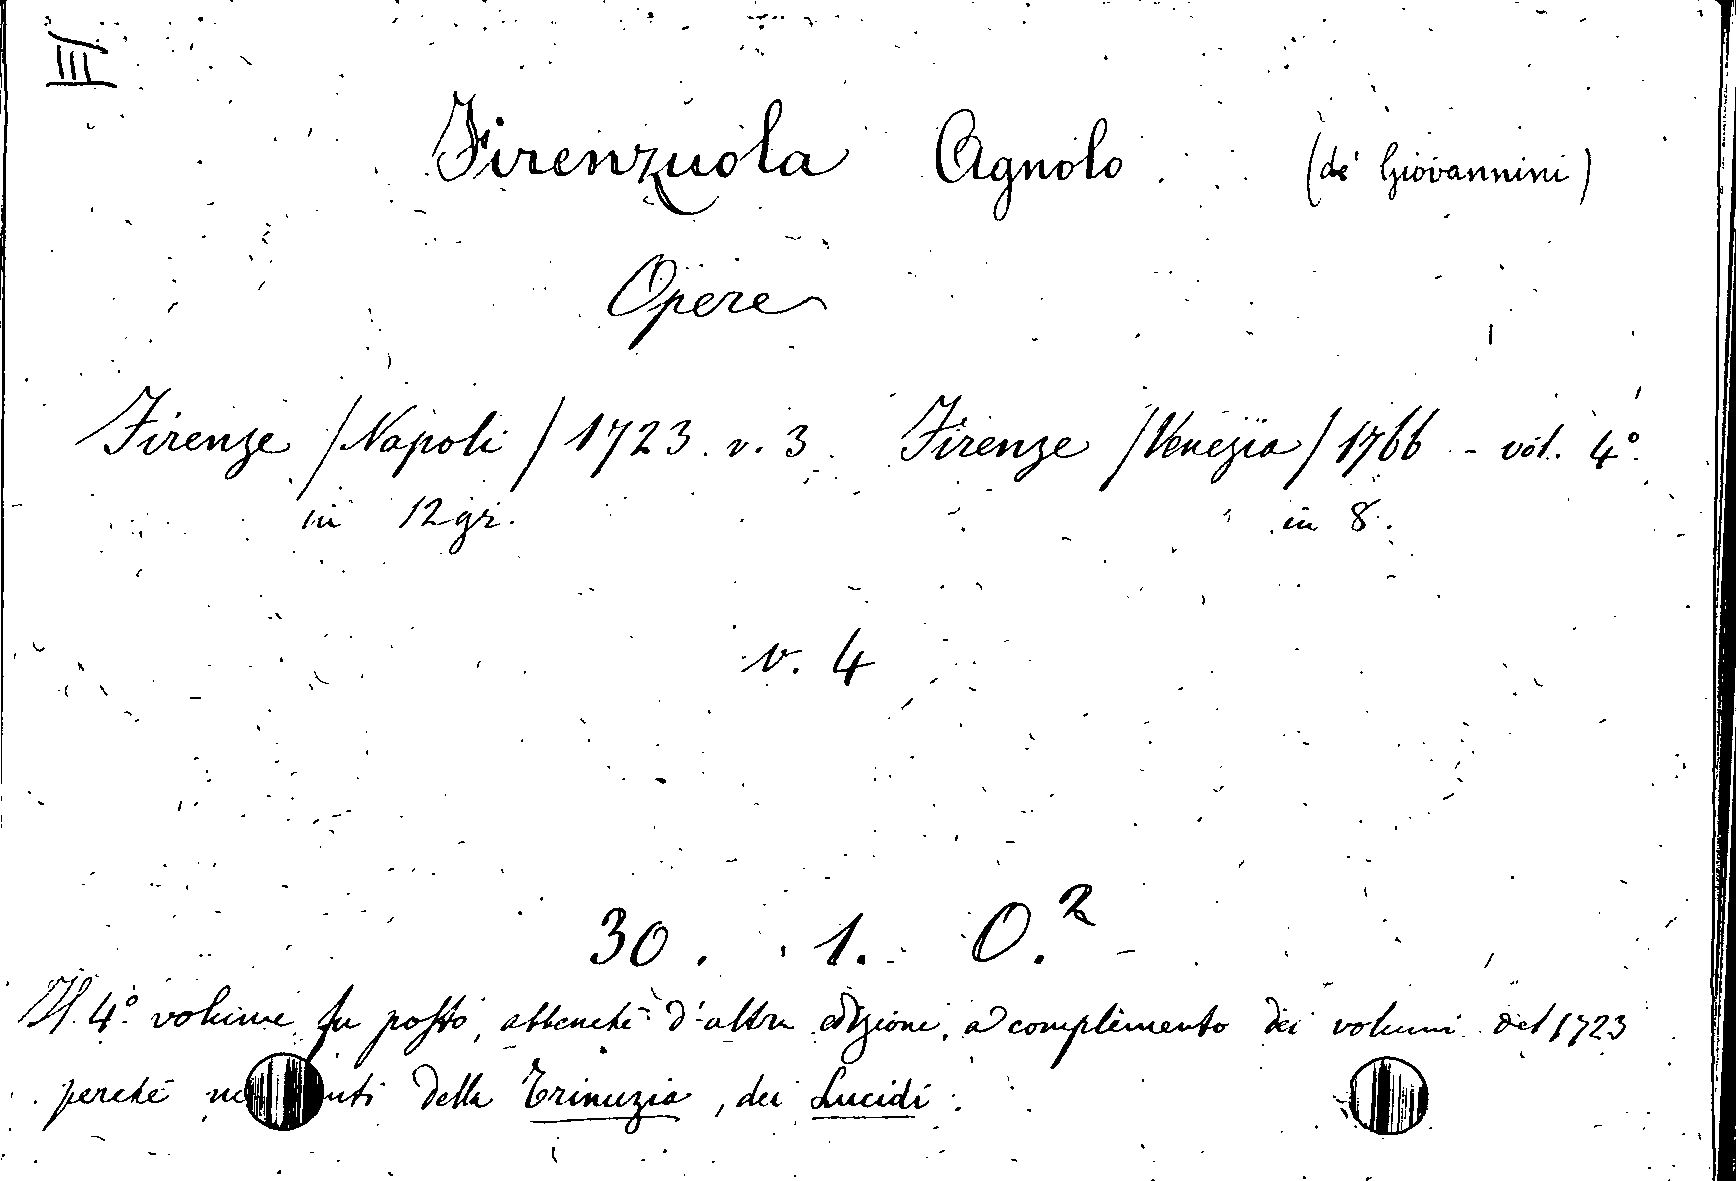 III
Firenzuola Agnolo (de' Giovannini)
Opere
Firenze /Napoli/ 1723. v. 3. Firenze /Venezia/ 1766 - vol. 4°.
in 12 gr. in 8.
v. 4
30. 1. O.²
Il 4°. volume fu posto, abbenchè d'altra edizione, a complemento dei volumi del 1723
perchè della Trinuzia, dei Lucidi.